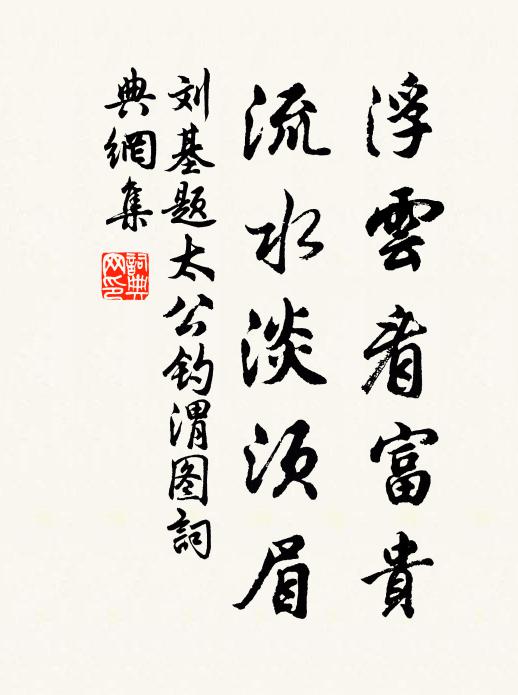 浮雲看富貴
流水淡须眉
刘基题太公钓渭图詞
典網集
詞典
网印